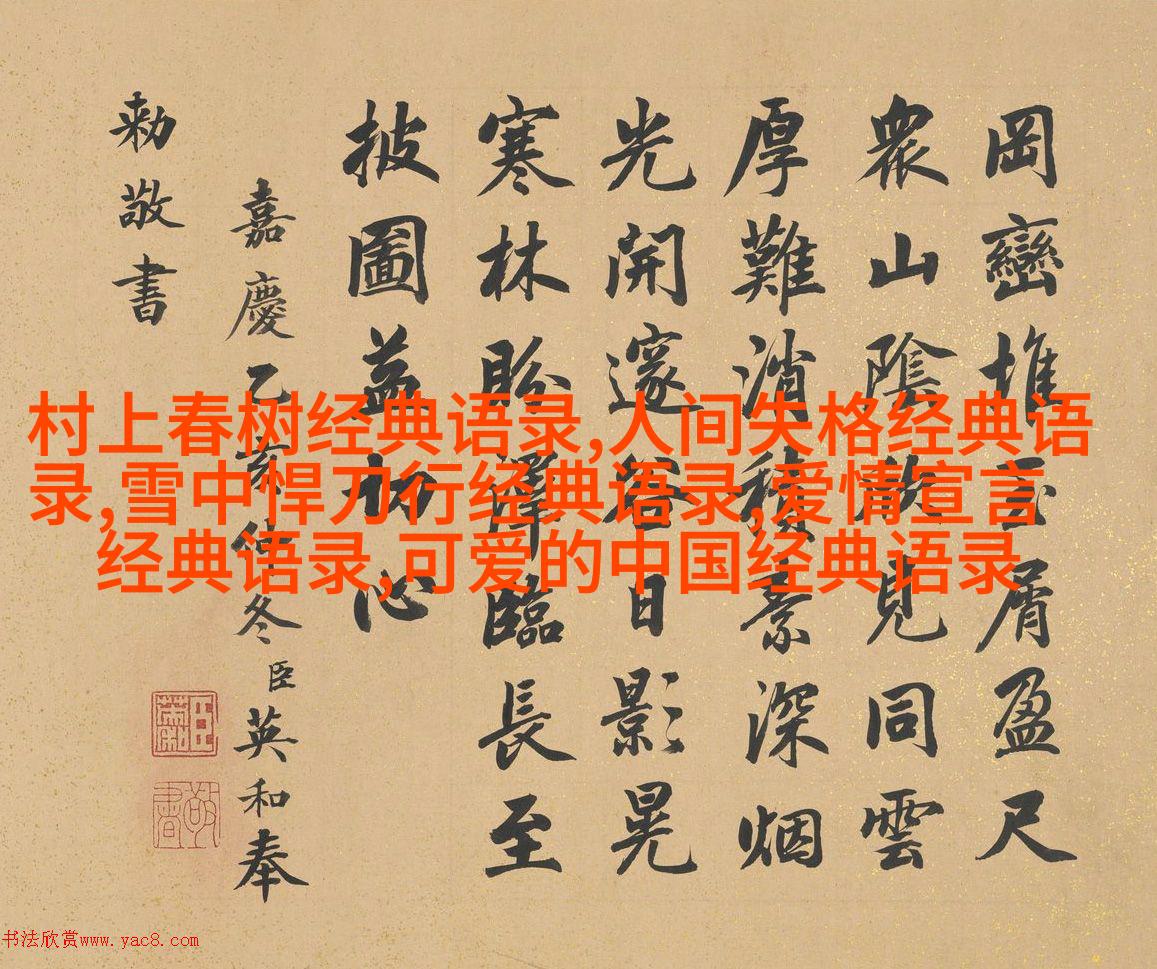 岡巒堆玉屑盈尺
衆山陰欣見同雲
厚難消積素深烟
光開邃谷日影晃
寒林盼澤臨長至
披圖益切心
嘉慶乙亥仲冬臣英和奉
勅敬書
村上春树经典语录,人间失格经典语
录,雪中悍刀行经典语录,爱情宣言
经典语录,可爱的中国经典语录
书法欣赏www.yac8.com